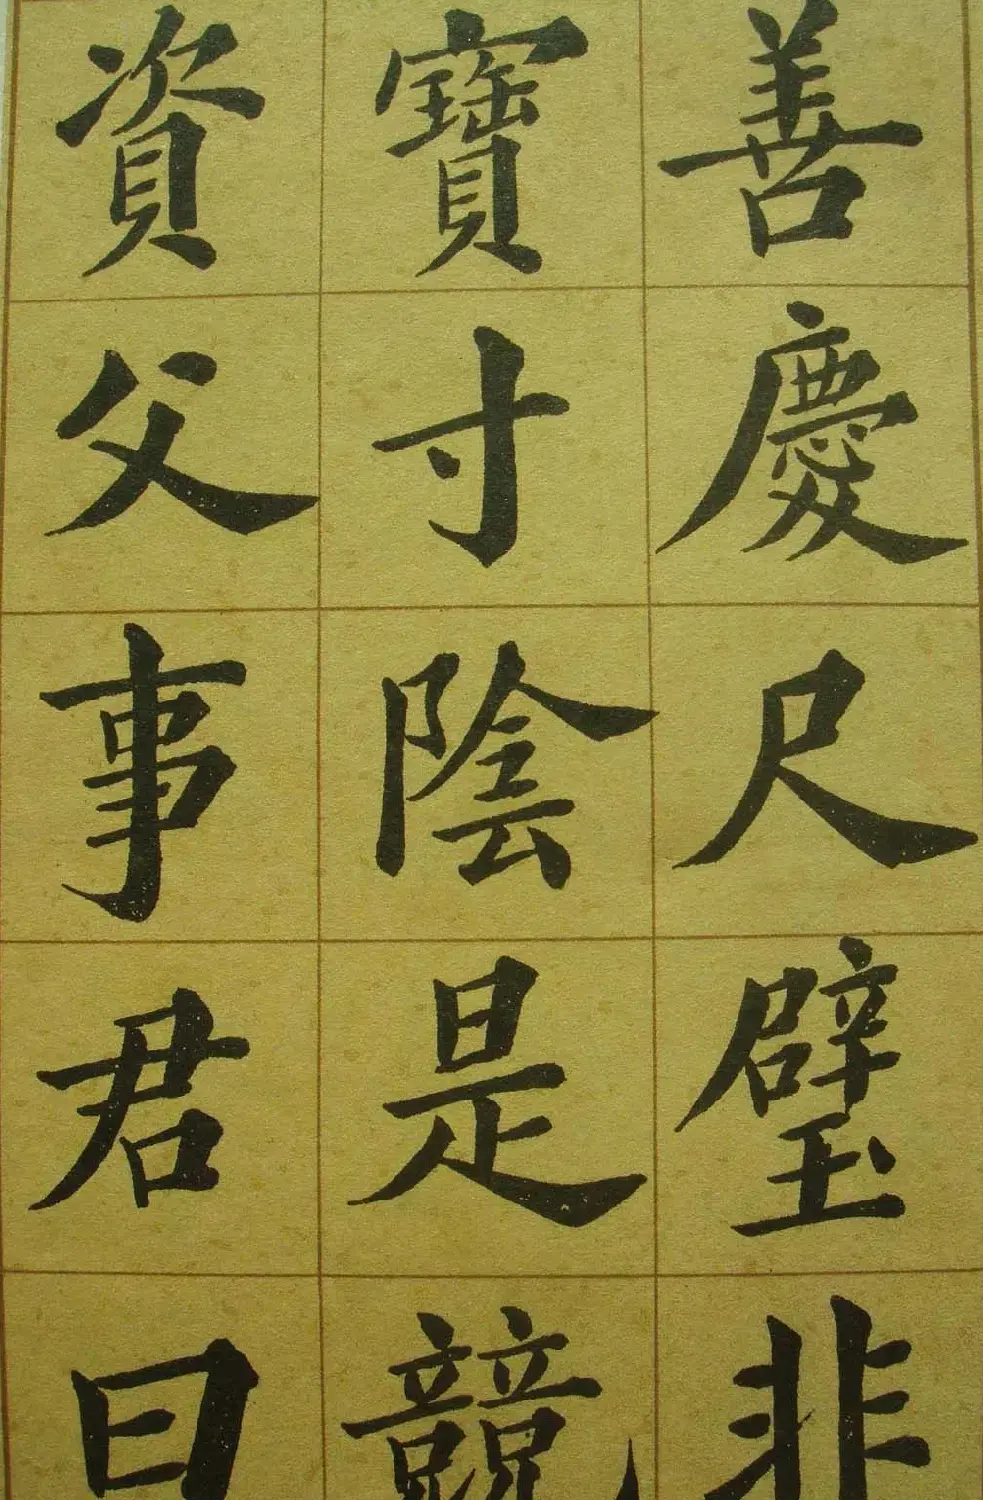 善慶尺璧非
寶寸陰是競
資父事君曰